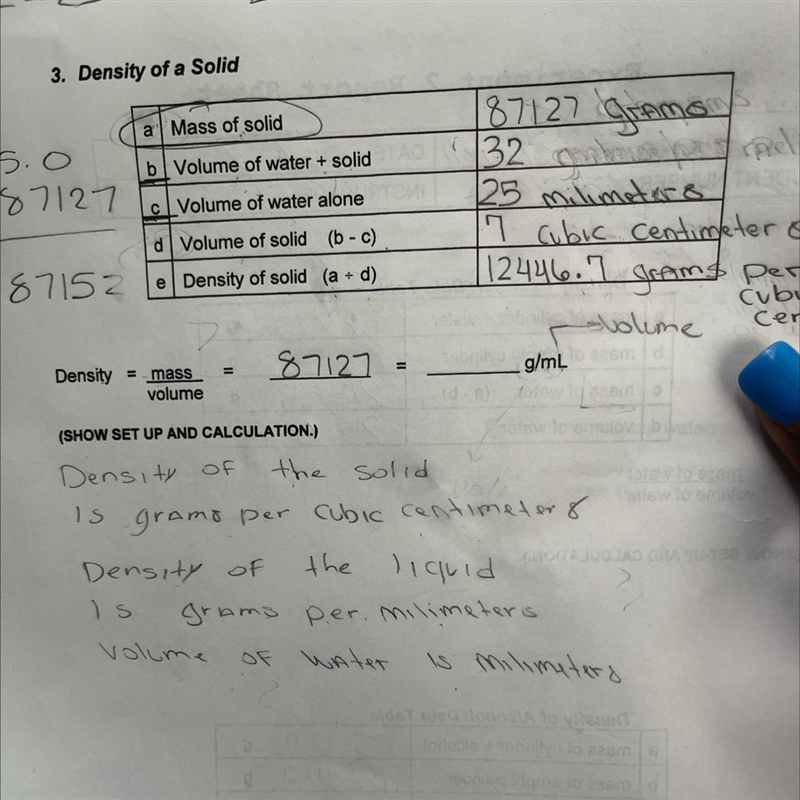 3. Density of a Solid
a Mass of solid 87127 grams
b Volume of water + solid 32
c Volume of water alone 25 milimeters
d Volume of solid (b - c) 7 cubic centimeters
e Density of solid (a ÷ d) 12446.7 grams per
5.0
87127
87152
volume
Density = mass = 87127 = ______ g/mL
volume
(SHOW SET UP AND CALCULATION.)
Density of the solid
Is grams per cubic centimeters
Density of the liquid
Is grams per. milimeters
Volume of water is milimeters